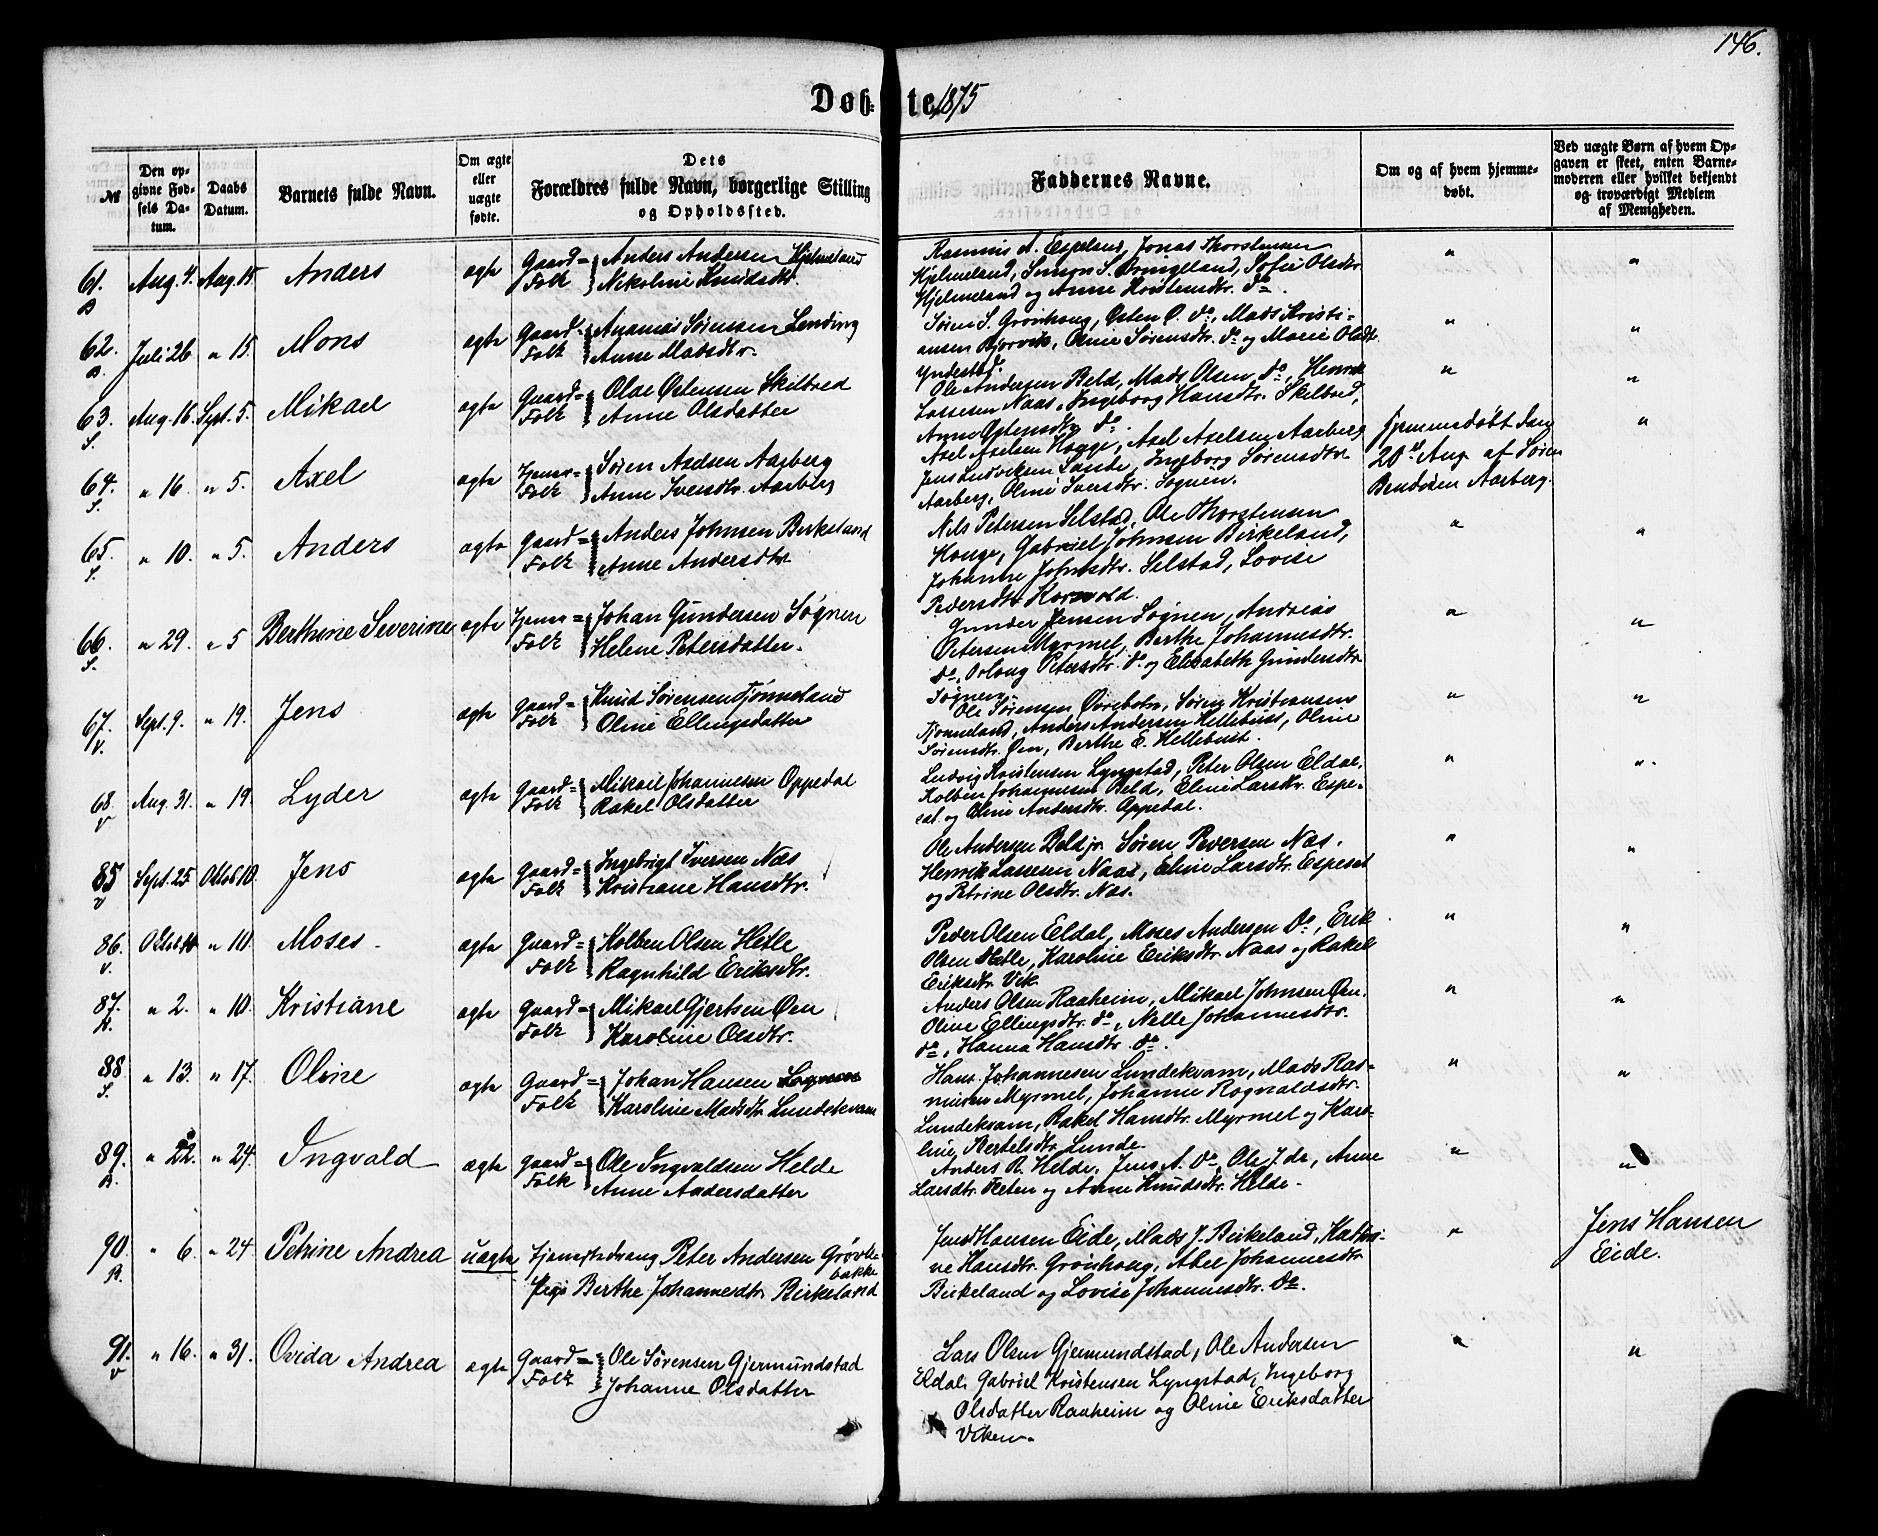 146.
Døbte 1875
№
Den opgivne Fødsels Datum.
Daabs Datum.
Barnets fulde Navn.
Om ægte eller uægte fødte.
Dets Forældres fulde Navn, borgerlige Stilling og Opholdssted.
Faddernes Navne.
Om og af hvem hjemmedøbt.
Ved uægte Børn af hvem Opgaven er skeet, enten Barnemoderen eller hvilket bekjendt og troværdigt Medlem af Menigheden.
61. Aug. 4. Aug. 15. Anders ægte Gaard= Folk Anders Andersen Hjelmeland
Nikoline Knudsdtr.
Rasmus A. Espeland, Jonas Thorstensen
Hjelmeland, Simon S. Bringeland, Sofie Olsdtr.
Hjelmeland og Anne Kristensdtr. do.
62. Juli 26 " 15. Mons ægte Gaard= Folk Ananias Sørensen Lending
Anne Madsdtr.
Søren S. Grønhoug, Østen O. do, Mads Kristi-
ansen Bjorvik, Oline Sørensdtr. do og Marie Olsdtr.
Yndestad.
63. S. Aug. 16. Sept. 5. Mikael ægte Gaard= Folk Olae Østensen Skilbred
Anne Olsdatter
Ole Andersen Beld, Mads Olsen do, Henrik
Lassesen Naas, Ingeborg Hansdtr. Skilbred,
Anne Østensdtr. do.
64. S. " 16. " 5. Axel ægte Hjemr= Folk Søren Axelsen Aarberg
Anne Iversdtr. Aarberg
Axel Axelsen Hogge, Axel Axelsen Aarberg
Jens Ludviksen Sande, Ingeborg Sørensdtr.
Aarberg, Oline Iversdtr. Sognen.
Hjemmedøbt den
20de Aug. af Søren
Bendixen Aarberg.
65. S. " 10. " 5. Anders ægte Gaard= Folk Anders Johnsen Birkeland
Anne Andersdtr.
Nels Petersen Selstad, Ole Thorstensen
Houge, Gabriel Johnsen Birkeland,
Johanne Johnsdtr. Selstad, Lovise
Pedersdtr. Korsvold.
66. S. " 29. " 5 Berthine Severine ægte Hjemr= Folk Johan Gundersen Sognen
Helene Petersdatter.
Gunder Jensen Sognen, Andreas
Petersen Myrmel, Berthe Johannesdtr.
do, Orloug Petersdtr. do og Elisabeth Gundersdtr.
Sognen.
67. V. Sept. 9. " 19. Jens ægte Gaard= Folk Knud Sørensen Tjønneland
Oline Ellingsdatter
Ole Sørensen Øvrebotn, Søren Kristiansen
Tjønneland, Anders Andersen Hellebust, Oline
Sørensdtr. Øen, Berthe E. Hellebust.
68. V Aug. 31. " 19. Lyder ægte Gaard= Folk Mikael Johannesen Oppedal
Rakel Olsdatter
Ludvig Kristensen Lyngstad, Peter Olsen Eldal,
Kolben Johannesen Beld, Eline Larsdtr. Espe-
set og Oline Andersdtr. Oppedal.
85 V Sept. 25. Oktob 10. Jens ægte Gaard= Folk Ingebrigt Iversen Næs
Kristiane Hansdtr.
Ole Andersen Beld jr. Søren Peversen Næs.
Henrik Lassesen Naas, Eline Larsdtr. Espeset
og Petrine Olsdtr. Næs.
86. V. " 10. Moses. ægte Gaard= Folk Kolben Olsen Helle
Ragnhild Eriksdtr.
Peder Olsen Eldal, Moses Andersen do, Erik
Olsen Helle, Karoline Eriksdtr. Naas og Rakel
Eriksdtr. Vik.
87. " 2. " 10. Kristiane ægte Gaard= Folk Mikael Gjertsen Øen
Karoline Olsdtr.
Anders Olsen Raaheim, Mikael Johnsen Øen.
Oline Ellingsdtr. do, Nelle Johannesdtr.
do, Hanna Hansdtr. do.
88. S. " 13. " 17. Oline ægte Gaard= Folk Johan Hansen
Karoline Madsdtr. Lundekvam
Hans Johannesen Lundekvam, Mads Ras-
musen Myrmel, Johanne Rognaldsdtr.
Lundekvam, Rakel Hansdtr. Myrmel og Karo-
line Bertelsdtr. Lunde.
89. " 22. " 24. Ingvald ægte Gaard= Folk Ole Ingvaldsen Helde
Anne Andersdatter
Anders R. Helde, Jens A. do, Ole J. do, Anne
Larsdtr. Fleten og Anne Knudsdtr. Helde.
90. " 6. " 24. Petrine Andrea uægte Tjenestedreng Peter Andersen Grøvle-
bakke
Pige Berthe Johannesdtr. Birkeland
Jens Hansen Eide, Mads J. Birkeland, Kathri-
ne Hansdtr. Grønhoug, Abel Johannesdtr.
Birkeland og Lovise Johannesdtr. do.
Jens Hansen
Eide.
91. V " 16. " 31. Ovida Andrea ægte Gaard= Folk Ole Sørensen Gjermundstad
Johanne Olsdatter
Lars Olsen Gjermundstad, Ole Andersen
Eldal, Gabriel Kristensen Lyngstad, Ingeborg
Olsdatter Raaheim og Oline Eriksdatter
Viken.